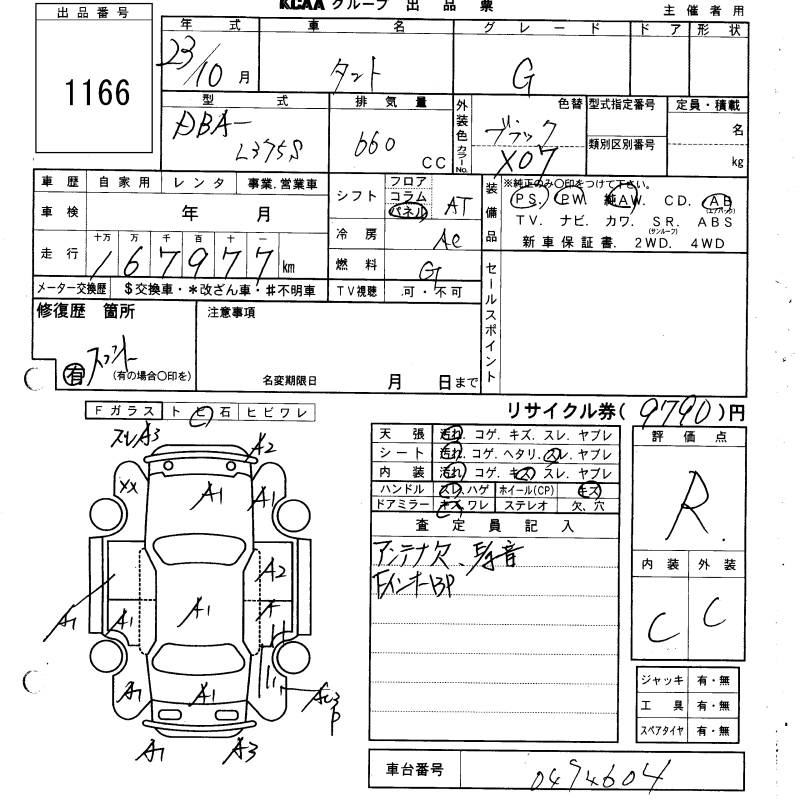 KCAA グループ 出品票
主催者用
出品番号
1166
年式 車名 グレード ドア 形状
23/10月 タント G
型式 排気量 外装色 カラーNo. 色替 型式指定番号 定員・積載
DBA- 660 CC ブラック 名
L375S X07 類別区別番号 kg
車歴 自家用 レンタ 事業.営業車
シフト フロア コラム パネル AT
装備品 ※純正のみ○印をつけて下さい。
P S. P W. 純AW. C D. A B (エアバッグ)
T V. ナビ. カワ. S R. (サンルーフ) A B S
新車保証書. 2WD. 4WD
車検 年 月
冷房 AC
走行 十万 万 千 百 十 一
167977 km
燃料 G
メーター交換歴 $交換車・*改ざん車・#不明車
TV視聴 .可・不可
セールスポイント
修復歴 箇所
有 (有の場合○印を)
注意事項
名変期限日 月 日まで
リサイクル券( 9790 )円
Fガラス ト ビ 石 ヒビワレ
A3
A2
XX
A1
A1
A2
A1
A1
A1
A1
A1
A1
A3
天張 汚れ. コゲ. キズ. スレ. ヤブレ
シート 汚れ. コゲ. ヘタリ. スレ. ヤブレ
内装 汚れ. コゲ. キズ. スレ. ヤブレ
ハンドル スレ. ハゲ ホイール(CP) キズ
ドアミラー キズ. ワレ ステレオ 欠、穴
査定員記入
アンテナ欠、
評価点
R
内装 外装
C C
ジャッキ 有・無
工具 有・無
スペアタイヤ 有・無
車台番号 0494604